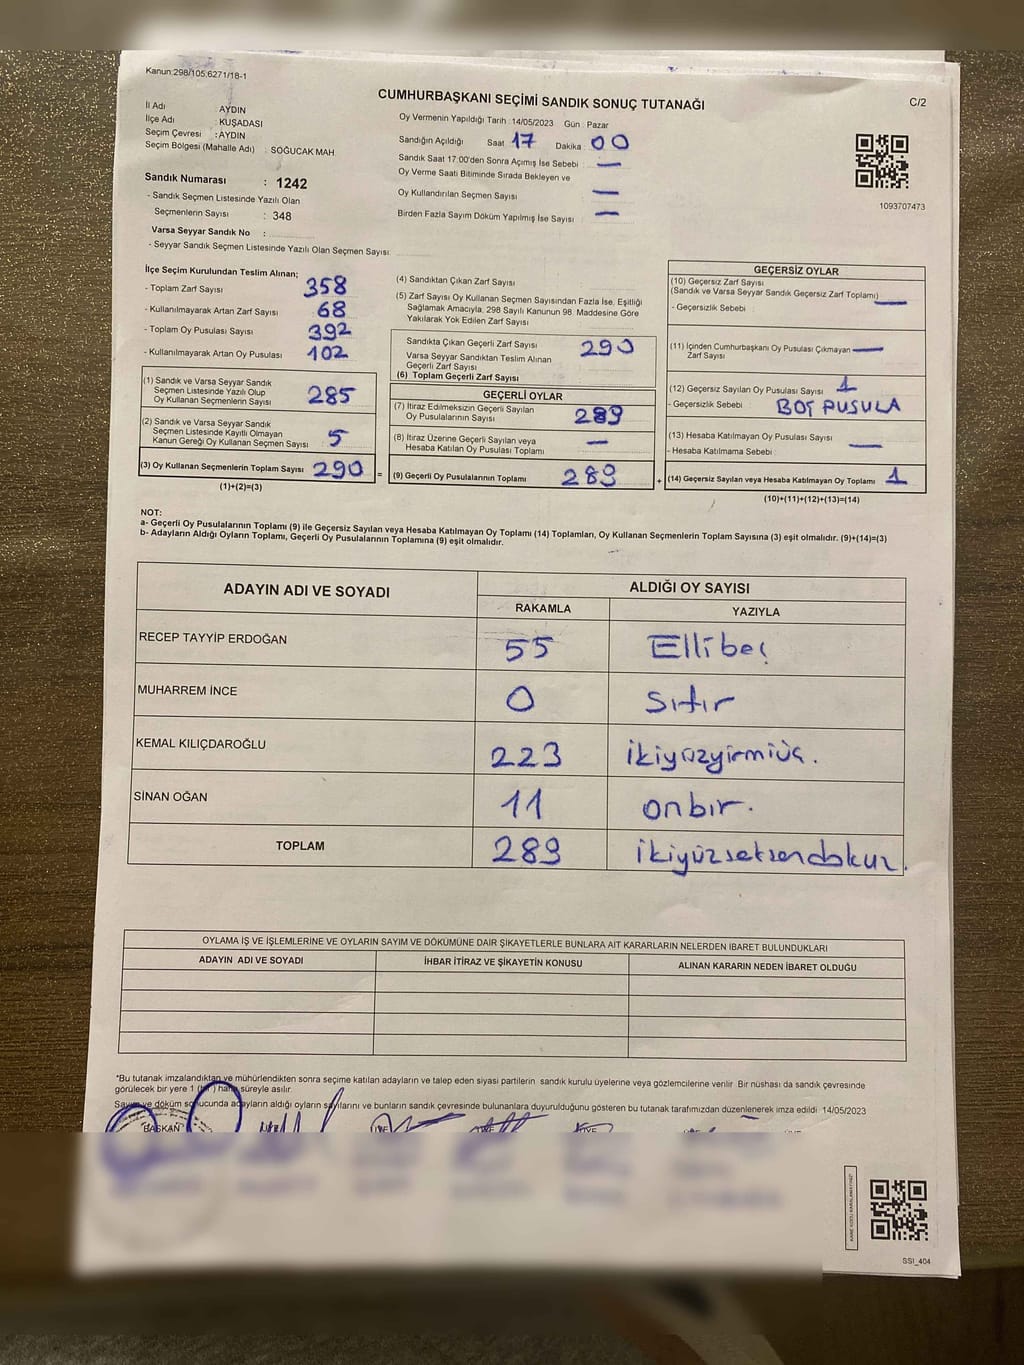 Kanun:298/105;6271/18-1
CUMHURBAŞKANI SEÇİMİ SANDIK SONUÇ TUTANAĞI
C/2
İl Adı AYDIN
İlçe Adı : KUŞADASI
Seçim Çevresi : AYDIN
Seçim Bölgesi (Mahalle Adı) : SOĞUCAK MAH.
Oy Vermenin Yapıldığı Tarih : 14/05/2023 Gün : Pazar
Sandığın Açıldığı Saat 17 Dakika 00
Sandık Saat 17:00'den Sonra Açımış İse Sebebi : —
Oy Verme Saati Bitiminde Sırada Bekleyen ve
Oy Kullandırılan Seçmen Sayısı —
Birden Fazla Sayım Döküm Yapılmış İse Sayısı : —
1093707473
Sandık Numarası : 1242
- Sandık Seçmen Listesinde Yazılı Olan
Seçmenlerin Sayısı : 348
Varsa Seyyar Sandık No :
- Seyyar Sandık Seçmen Listesinde Yazılı Olan Seçmen Sayısı:
İlçe Seçim Kurulundan Teslim Alınan;
- Toplam Zarf Sayısı 358
- Kullanılmayarak Artan Zarf Sayısı 68
- Toplam Oy Pusulası Sayısı 392
- Kullanılmayarak Artan Oy Pusulası 102
(1) Sandık ve Varsa Seyyar Sandık
Seçmen Listesinde Yazılı Olup
Oy Kullanan Seçmenlerin Sayısı 285
(2) Sandık ve Varsa Seyyar Sandık
Seçmen Listesinde Kayıtlı Olmayan
Kanun Gereği Oy Kullanan Seçmen Sayısı 5
(3) Oy Kullanan Seçmenlerin Toplam Sayısı 290 =
(1)+(2)=(3)
(4) Sandıktan Çıkan Zarf Sayısı
(5) Zarf Sayısı Oy Kullanan Seçmen Sayısından Fazla İse, Eşitliği
Sağlamak Amacıyla, 298 Sayılı Kanunun 98. Maddesine Göre
Yakılarak Yok Edilen Zarf Sayısı
Sandıkta Çıkan Geçerli Zarf Sayısı 290
Varsa Seyyar Sandıktan Teslim Alınan
Geçerli Zarf Sayısı
(6) Toplam Geçerli Zarf Sayısı
GEÇERLİ OYLAR
(7) İtiraz Edilmeksizin Geçerli Sayılan
Oy Pusulalarının Sayısı 289
(8) İtiraz Üzerine Geçerli Sayılan veya
Hesaba Katılan Oy Pusulası Toplamı —
(9) Geçerli Oy Pusulalarının Toplamı 289 +
GEÇERSİZ OYLAR
(10) Geçersiz Zarf Sayısı
(Sandık ve Varsa Seyyar Sandık Geçersiz Zarf Toplamı) —
- Geçersizlik Sebebi :
(11) İçinden Cumhurbaşkanı Oy Pusulası Çıkmayan —
Zarf Sayısı
(12) Geçersiz Sayılan Oy Pusulası Sayısı 1
- Geçersizlik Sebebi : BOŞ PUSULA
(13) Hesaba Katılmayan Oy Pusulası Sayısı —
- Hesaba Katılmama Sebebi :
(14) Geçersiz Sayılan veya Hesaba Katılmayan Oy Toplamı 1
(10)+(11)+(12)+(13)=(14)
NOT:
a- Geçerli Oy Pusulalarının Toplamı (9) ile Geçersiz Sayılan veya Hesaba Katılmayan Oy Toplamı (14) Toplamları, Oy Kullanan Seçmenlerin Toplam Sayısına (3) eşit olmalıdır. (9)+(14)=(3)
b- Adayların Aldığı Oyların Toplamı, Geçerli Oy Pusulalarının Toplamına (9) eşit olmalıdır.
ADAYIN ADI VE SOYADI ALDIĞI OY SAYISI
RAKAMLA YAZIYLA
RECEP TAYYİP ERDOĞAN 55 Ellibeş
MUHARREM İNCE 0 Sıfır
KEMAL KILIÇDAROĞLU 223 ikiyüzyirmiüç.
SİNAN OĞAN 11 onbir.
TOPLAM 289 ikiyüzseksendokuz.
OYLAMA İŞ VE İŞLEMLERİNE VE OYLARIN SAYIM VE DÖKÜMÜNE DAİR ŞİKAYETLERLE BUNLARA AİT KARARLARIN NELERDEN İBARET BULUNDUKLARI
ADAYIN ADI VE SOYADI İHBAR İTİRAZ VE ŞİKAYETİN KONUSU ALINAN KARARIN NEDEN İBARET OLDUĞU
*Bu tutanak imzalandıktan ve mühürlendikten sonra seçime katılan adayların ve talep eden siyasi partilerin sandık kurulu üyelerine veya gözlemcilerine verilir. Bir nüshası da sandık çevresinde
görülecek bir yere 1 (bir) hafta süreyle asılır.
Sayım ve döküm sonucunda adayların aldığı oyların sayılarını ve bunların sandık çevresinde bulunanlara duyurulduğunu gösteren bu tutanak tarafımızdan düzenlenerek imza edildi. 14/05/2023
BAŞKAN
SSI_404